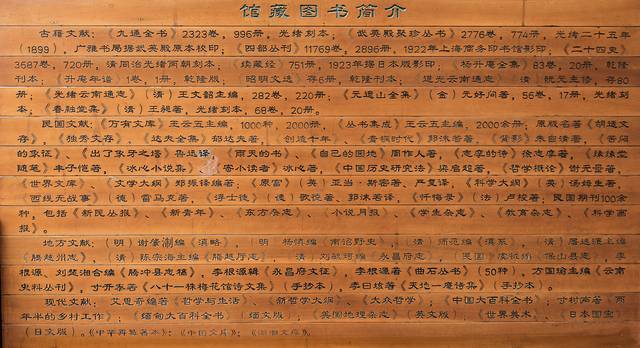 馆藏图书简介
古籍文献：《九通全书》2323卷，996册，光绪刻本。《武英殿聚珍丛书》2776卷，774册，光绪二十五年
（1899），广雅书局据武英殿原本校印；《四部丛刊》11769卷，2896册，1922年上海商务印书馆影印；《二十四史》
3587卷，720册，清同治光绪两朝刻本；《续藏经》751册，1923年据日本版影印；《杨升庵全集》83卷，20册，乾隆
刊本；《升庵年谱》1卷，1册，乾隆版；《昭明文选》存6册，乾隆刊本；《道光云南通志》（清）阮元主修，存80
册；《光绪云南通志》（清）王文韶主编，282卷，220册；《元遗山全集》（金）元好问著，56卷，17册，光绪刻
本；《春融堂集》（清）王昶著，光绪刻本，68卷，20册。
民国文献：《万有文库》王云五主编，1000种，2000册，《丛书集成》王云五主编，2000余册；原版名著《胡适文
存》、《独秀文存》、《达夫全集》郁达夫著，《创造十年》、《黄病时代》郭沫若著，《背影》朱自清著，《苦闷
的象征》、《出了象牙之塔》鲁迅译，《雨天的书》、《自己的园地》周作人著，《志摩的诗》徐志摩著，《缘缘堂
随笔》丰子恺著，《冰心小说集》、《寄小读者》冰心著，《中国历史研究法》梁启超著，《哲学概论》谢无量著，
《世界文库》、《文学大纲》郑振铎编著；《原富》（英）亚当·斯密著，严复译，《科学大纲》（英）汤姆生著，
《西线无战事》（德）雷马克著，《浮士德》（德）歌德著，郭沫若译，《忏悔录》（法）卢梭著；民国期刊100余
种，包括《新民丛报》、《新青年》、《东方杂志》、《小说月报》、《学生杂志》、《教育杂志》、《科学画
报》。
地方文献：（明）谢肇淛编《滇略》，（明）杨慎编《南诏野史》，（清）师范编《滇系》，（清）屠述濂主编
《腾越州志》，（清）陈宗海主编《腾越厅志》，（清）刘毓珂编《永昌府志》，（民国）《保山县志》，李
根源、刘楚湘合编《腾冲县志稿》，李根源辑《永昌府文征》，李根源著《曲石丛书》（50种），方国瑜主编《云南
史料丛刊》，寸开泰著《八十一株梅花馆诗文集》（手抄本），李曰垓著《天地一廋诗集》（手抄本）。
现代文献：艾思奇编著《哲学与生活》、《新哲学大纲》、《大众哲学》；《中国大百科全书》；寸树声著《两
年半的乡村工作》；《缅甸大百科全书》（缅文版）；《英国地理杂志》（英文版）；《世界美术》、《日本国宝》
（日文版）。《中华再造善本》；《中国文库》；